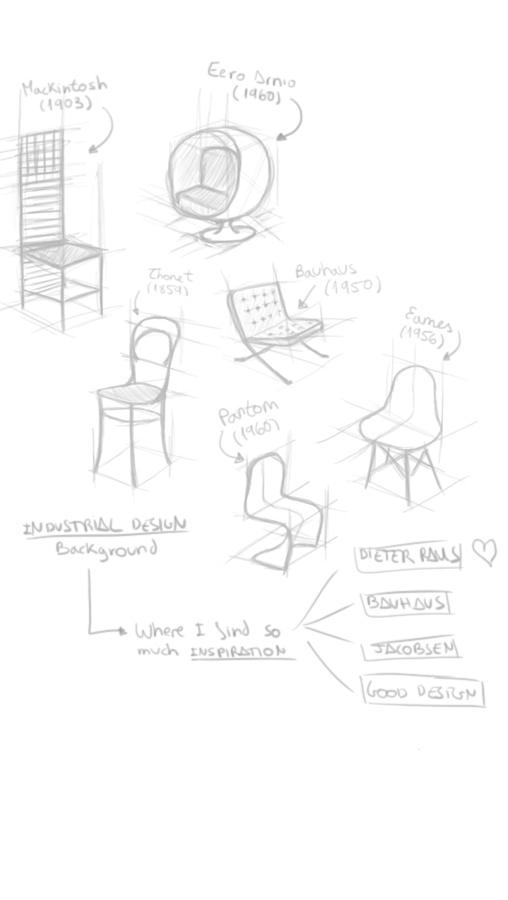 Mackintosh
(1903)
Eero Arnio
(1960)
Thonet
(1859)
Bauhaus
(1950)
Eames
(1956)
Pantom
(1960)
INDUSTRIAL DESIGN
Background
Where I find so
much INSPIRATION
DIETER RAMS
BAUHAUS
JACOBSEN
GOOD DESIGN